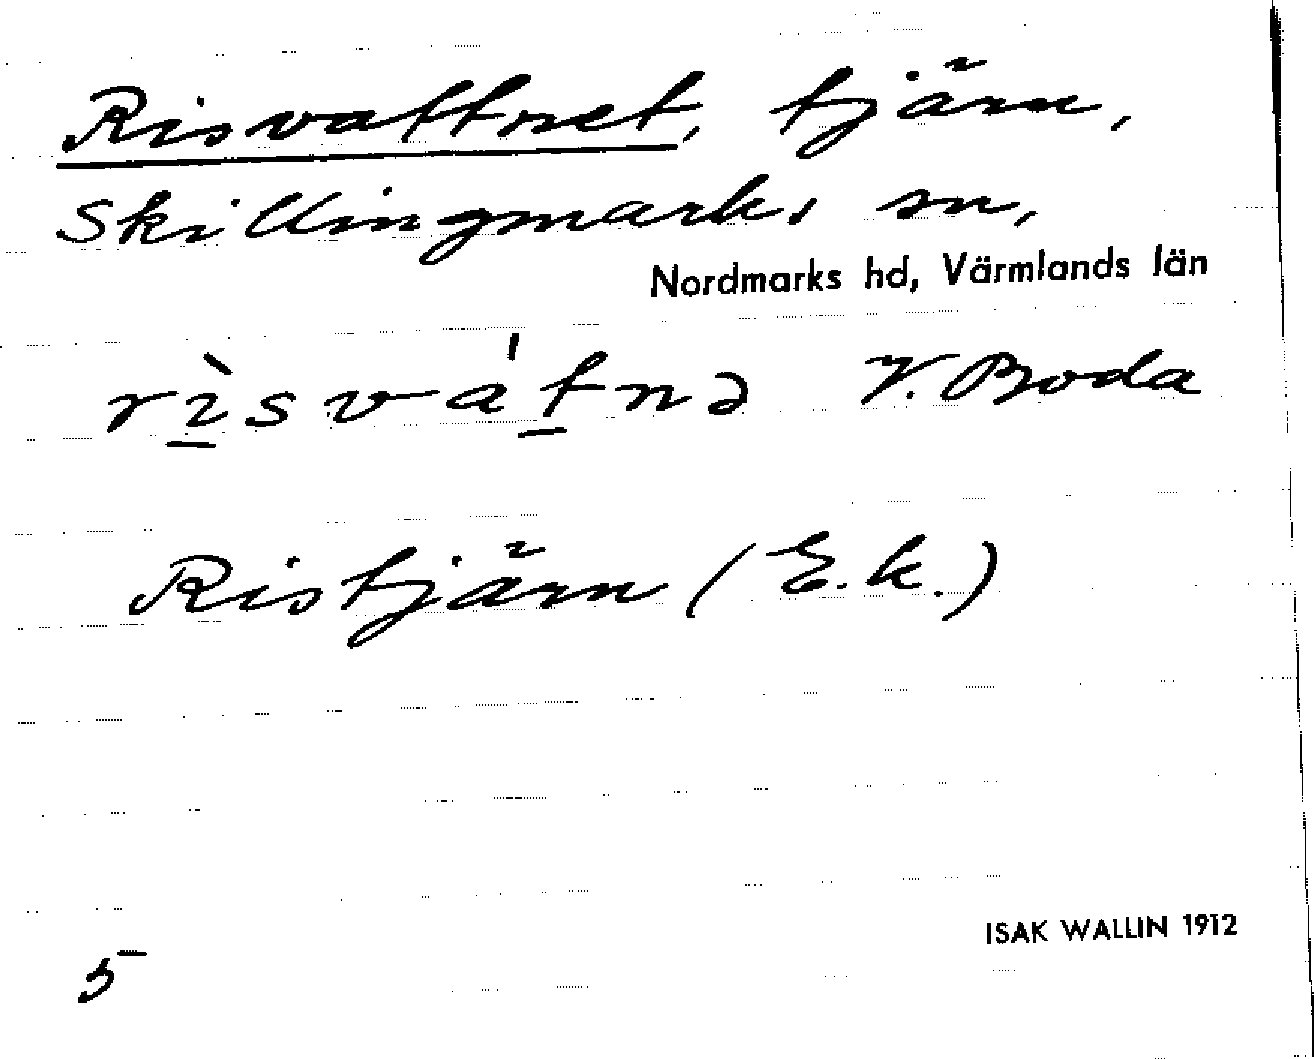 Risvattnet, tjärn,
Skillingmarks sn,
Nordmarks hd, Värmlands län
rı̀svátnə V. Boda
Ristjärn (E.k.)
ISAK WALLIN 1912
5